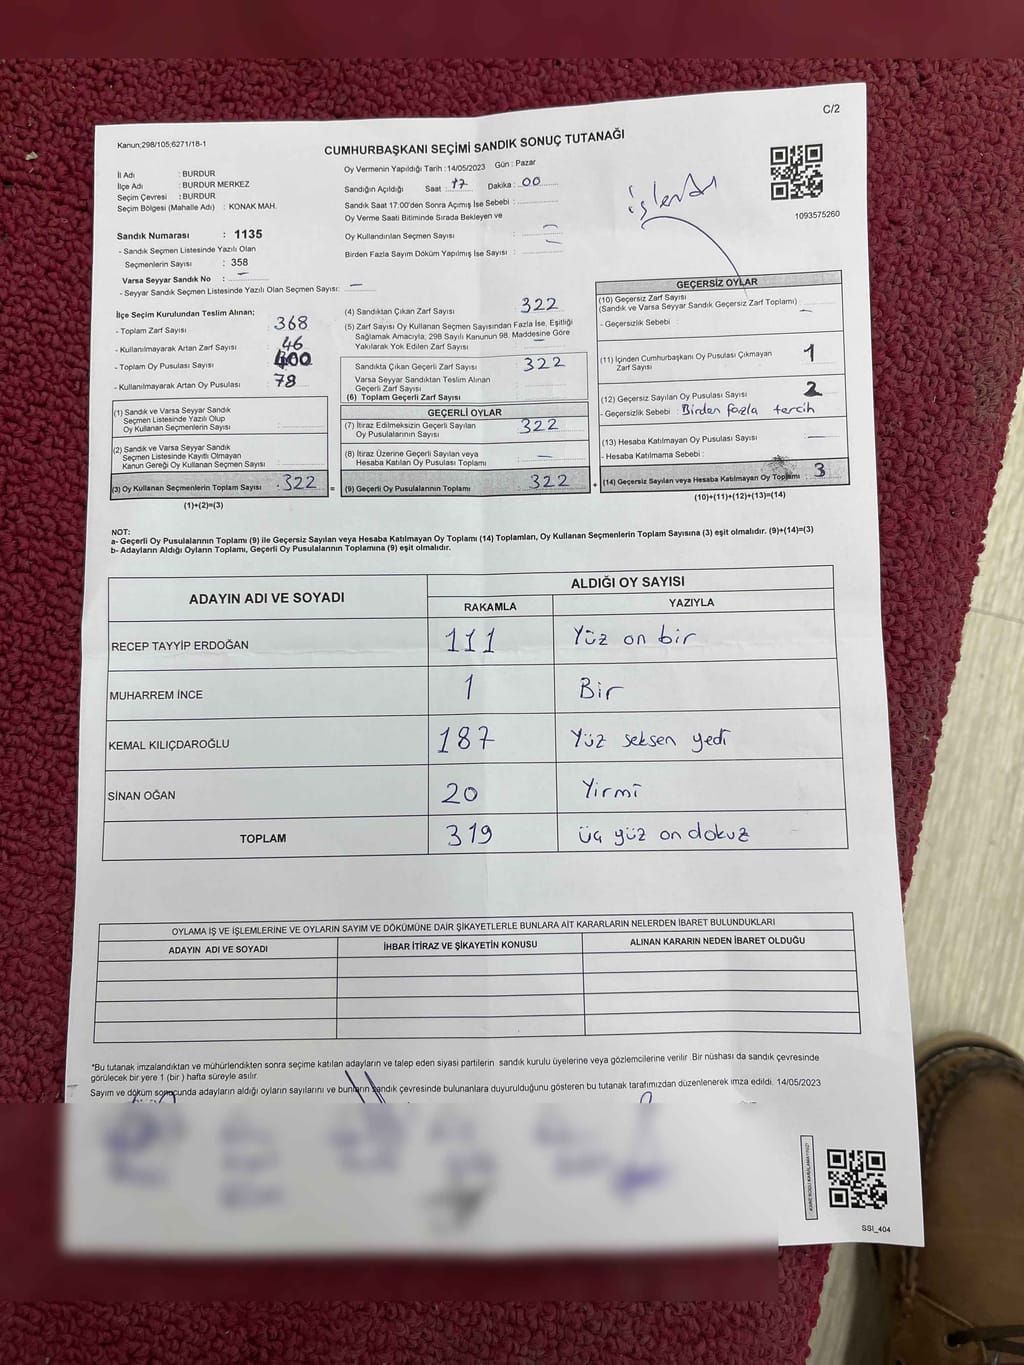 C/2
Kanun;298/105;6271/18-1
CUMHURBAŞKANI SEÇİMİ SANDIK SONUÇ TUTANAĞI
İl Adı : BURDUR
İlçe Adı : BURDUR MERKEZ
Seçim Çevresi : BURDUR
Seçim Bölgesi (Mahalle Adı) : KONAK MAH.
Sandık Numarası : 1135
- Sandık Seçmen Listesinde Yazılı Olan
Seçmenlerin Sayısı : 358
Varsa Seyyar Sandık No : —
- Seyyar Sandık Seçmen Listesinde Yazılı Olan Seçmen Sayısı: —
Oy Vermenin Yapıldığı Tarih :14/05/2023 Gün : Pazar
Sandığın Açıldığı Saat : 17 Dakika : 00
Sandık Saat 17:00'den Sonra Açımış İse Sebebi :
Oy Verme Saati Bitiminde Sırada Bekleyen ve
Oy Kullandırılan Seçmen Sayısı : —
Birden Fazla Sayım Döküm Yapılmış İse Sayısı : —
işlendi
1093575260
İlçe Seçim Kurulundan Teslim Alınan;
- Toplam Zarf Sayısı : 368
- Kullanılmayarak Artan Zarf Sayısı : 46
- Toplam Oy Pusulası Sayısı : 400
- Kullanılmayarak Artan Oy Pusulası : 78
(1) Sandık ve Varsa Seyyar Sandık
Seçmen Listesinde Yazılı Olup
Oy Kullanan Seçmenlerin Sayısı :
(2) Sandık ve Varsa Seyyar Sandık
Seçmen Listesinde Kayıtlı Olmayan
Kanun Gereği Oy Kullanan Seçmen Sayısı :
(3) Oy Kullanan Seçmenlerin Toplam Sayısı : 322
(1)+(2)=(3)
(4) Sandıktan Çıkan Zarf Sayısı : 322
(5) Zarf Sayısı Oy Kullanan Seçmen Sayısından Fazla İse, Eşitliği
Sağlamak Amacıyla, 298 Sayılı Kanunun 98. Maddesine Göre
Yakılarak Yok Edilen Zarf Sayısı
Sandıkta Çıkan Geçerli Zarf Sayısı : 322
Varsa Seyyar Sandıktan Teslim Alınan
Geçerli Zarf Sayısı
(6) Toplam Geçerli Zarf Sayısı
GEÇERLİ OYLAR
(7) İtiraz Edilmeksizin Geçerli Sayılan
Oy Pusulalarının Sayısı : 322
(8) İtiraz Üzerine Geçerli Sayılan veya
Hesaba Katılan Oy Pusulası Toplamı : —
= (9) Geçerli Oy Pusulalarının Toplamı : 322
GEÇERSİZ OYLAR
(10) Geçersiz Zarf Sayısı
(Sandık ve Varsa Seyyar Sandık Geçersiz Zarf Toplamı) : —
- Geçersizlik Sebebi :
(11) İçinden Cumhurbaşkanı Oy Pusulası Çıkmayan
Zarf Sayısı : 1
(12) Geçersiz Sayılan Oy Pusulası Sayısı : 2
- Geçersizlik Sebebi : Birden fazla tercih
(13) Hesaba Katılmayan Oy Pusulası Sayısı : —
- Hesaba Katılmama Sebebi :
+ (14) Geçersiz Sayılan veya Hesaba Katılmayan Oy Toplamı : 3
(10)+(11)+(12)+(13)=(14)
NOT:
a- Geçerli Oy Pusulalarının Toplamı (9) ile Geçersiz Sayılan veya Hesaba Katılmayan Oy Toplamı (14) Toplamları, Oy Kullanan Seçmenlerin Toplam Sayısına (3) eşit olmalıdır. (9)+(14)=(3)
b- Adayların Aldığı Oyların Toplamı, Geçerli Oy Pusulalarının Toplamına (9) eşit olmalıdır.
ADAYIN ADI VE SOYADI ALDIĞI OY SAYISI
RAKAMLA YAZIYLA
RECEP TAYYİP ERDOĞAN 111 Yüz on bir
MUHARREM İNCE 1 Bir
KEMAL KILIÇDAROĞLU 187 Yüz seksen yedi
SİNAN OĞAN 20 Yirmi
TOPLAM 319 üç yüz on dokuz
OYLAMA İŞ VE İŞLEMLERİNE VE OYLARIN SAYIM VE DÖKÜMÜNE DAİR ŞİKAYETLERLE BUNLARA AİT KARARLARIN NELERDEN İBARET BULUNDUKLARI
ADAYIN ADI VE SOYADI İHBAR İTİRAZ VE ŞİKAYETİN KONUSU ALINAN KARARIN NEDEN İBARET OLDUĞU
*Bu tutanak imzalandıktan ve mühürlendikten sonra seçime katılan adayların ve talep eden siyasi partilerin sandık kurulu üyelerine veya gözlemcilerine verilir Bir nüshası da sandık çevresinde
görülecek bir yere 1 (bir ) hafta süreyle asılır.
Sayım ve döküm sonucunda adayların aldığı oyların sayılarını ve bunların sandık çevresinde bulunanlara duyurulduğunu gösteren bu tutanak tarafımızdan düzenlenerek imza edildi. 14/05/2023
SSI_404